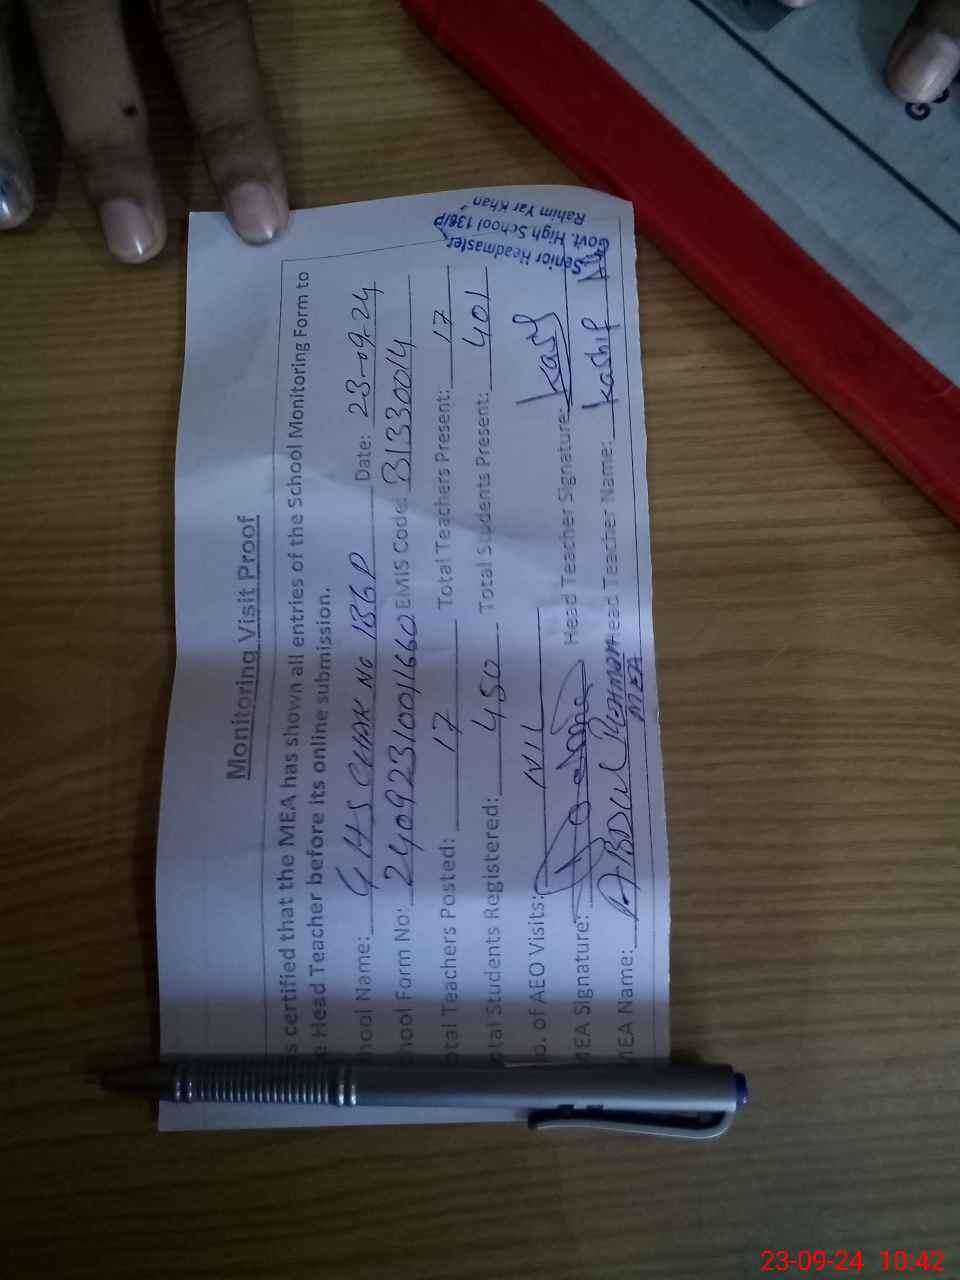 Monitoring Visit Proof
s certified that the MEA has shown all entries of the School Monitoring Form to
e Head Teacher before its online submission.
hool Name: GHS CHAK No 136P Date: 23-09-24
hool Form No: 2409231001660 EMIS Code: 31330014
otal Teachers Posted: 17 Total Teachers Present: 17
otal Students Registered: 450 Total Students Present: 401
o. of AEO Visits: NIL
MEA Signature: Head Teacher Signature: Kashif
MEA Name: ABDUL REHMAN Head Teacher Name: Kashif
MEA
Senior Headmaster
Govt. High School 136/P
Rahim Yar Khan
23-09-24 10:42